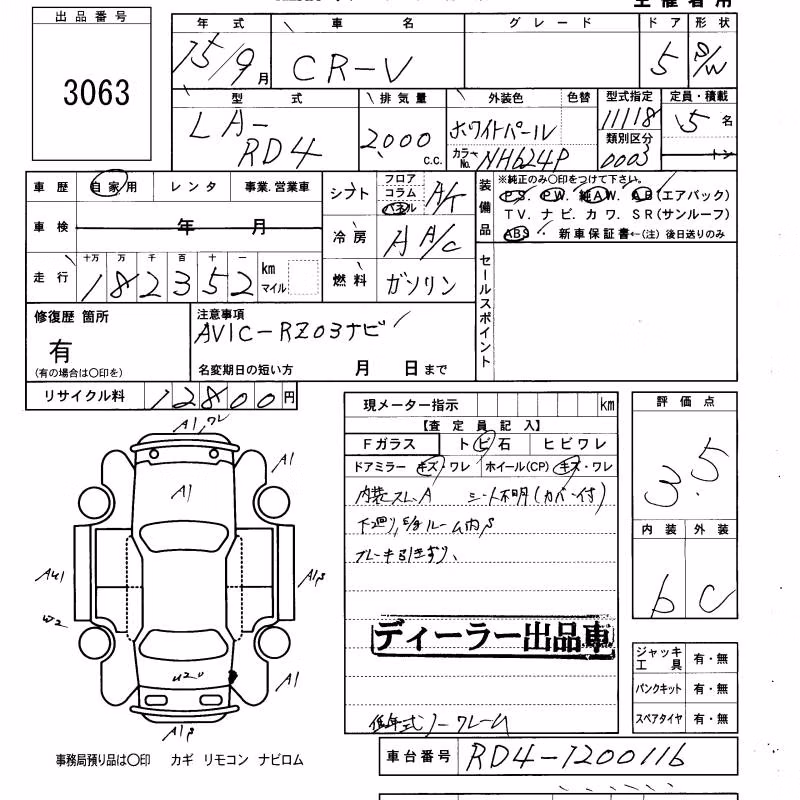 主催者用
出品番号
3063
年式 車名 グレード ドア 形状
15/9月 CR-V 5 S/W
型式 排気量 外装色 色替 型式指定 定員・積載
LA-RD4 2,000 c.c. ホワイトパール 11118 5名
カラーNo. NH624P 類別区分 0003 トン
車歴 自家用 レンタ 事業.営業車
シフト フロア コラム パネル A/T
装備品 ※純正のみ〇印をつけて下さい。
PS. PW. 純AW. AB(エアバック)
TV. ナビ. カワ. SR(サンルーフ)
ABS 新車保証書←(注) 後日送りのみ
車検 年 月
冷房 A A/C
走行 十万 万 千 百 十 一 km マイル
182352
燃料 ガソリン
セールスポイント
修復歴 箇所
有
(有の場合は〇印を)
注意事項
AVIC-RZ03ナビ
名変期日の短い方 月 日まで
リサイクル料 12800円
現メーター指示 km
【査定員記入】
Fガラス トビ石 ヒビワレ
ドアミラー キズ・ワレ ホイール(CP) キズ・ワレ
内装スレ、A シート不明(カバー付)
下廻り、E/gルーム内S
ブレーキ引きずり、
ディーラー出品車
低年式ノークレーム
評価点
3.5
内装 外装
b C
ジャッキ工具 有・無
パンクキット 有・無
スペアタイヤ 有・無
A1,ワレ
A1
A1
AU1
A1S
W2
U2
A1
A1S
事務局預り品は〇印 カギ リモコン ナビロム
車台番号 RD4-1200116